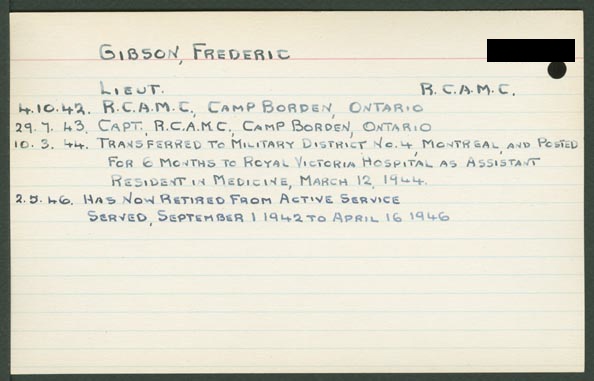 GIBSON, FREDERIC
LIEUT. R.C.A.M.C.
4.10.42. R.C.A.M.C., CAMP BORDEN, ONTARIO
29.7.43. CAPT., R.C.A.M.C., CAMP BORDEN, ONTARIO
10.3.44. TRANSFERRED TO MILITARY DISTRICT NO. 4, MONTREAL, AND POSTED
FOR 6 MONTHS TO ROYAL VICTORIA HOSPITAL AS ASSISTANT
RESIDENT IN MEDICINE, MARCH 12, 1944.
2.5.46. HAS NOW RETIRED FROM ACTIVE SERVICE
SERVED, SEPTEMBER 1 1942 TO APRIL 16 1946